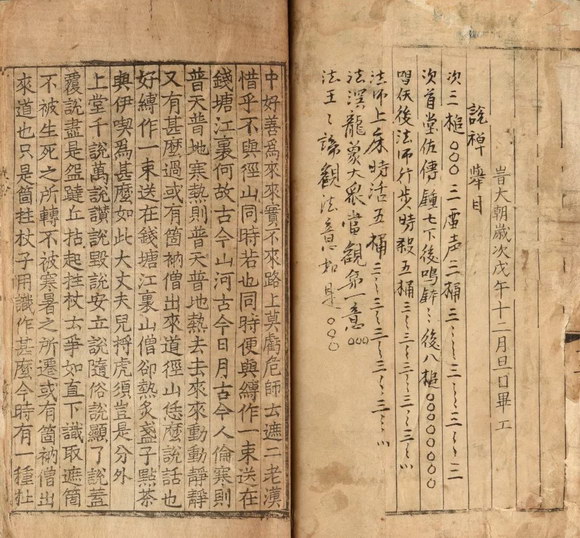 旹大朝歲次戊午十二月旦日畢工
說禪舉目
次三槌○○○三虛声三桶三~~三~三~三
次首堂佐傳鍾七下後鳴鈸~~後八槌○○○○○○○○
後法師行步時殺五桶三~三~三~三~三~
法師上床時活五桶三~三~三~三~三~
法深龍象大众當觀第一意○○○
法王之論觀法意如是○○○
中好善爲來來實不來路上莫虧危師云遮二老漢
惜乎不與徑山同時若也同時便與縛作一束送在
錢塘江裏何故古今山河古今日月古今人倫寒則
普天普地寒熱則普天普地熱去去來來動動靜靜
又有甚麽過或有箇衲僧出來道徑山恁麽說話也
好縛作一束送在錢塘江裏山僧卻熱炙盞子點茶
與伊喫爲甚麽如此大丈夫兒捋虎須豈是分外
上堂千說萬說讃說毀說安立說隨俗說顯了說蓋
覆說盡是盌躂丘拈起拄杖云爭如直下識取遮箇
不被生死之所轉不被寒暑之所遷或有箇衲僧出
來道也只是箇拄杖子用識作甚麽今時有一種杜